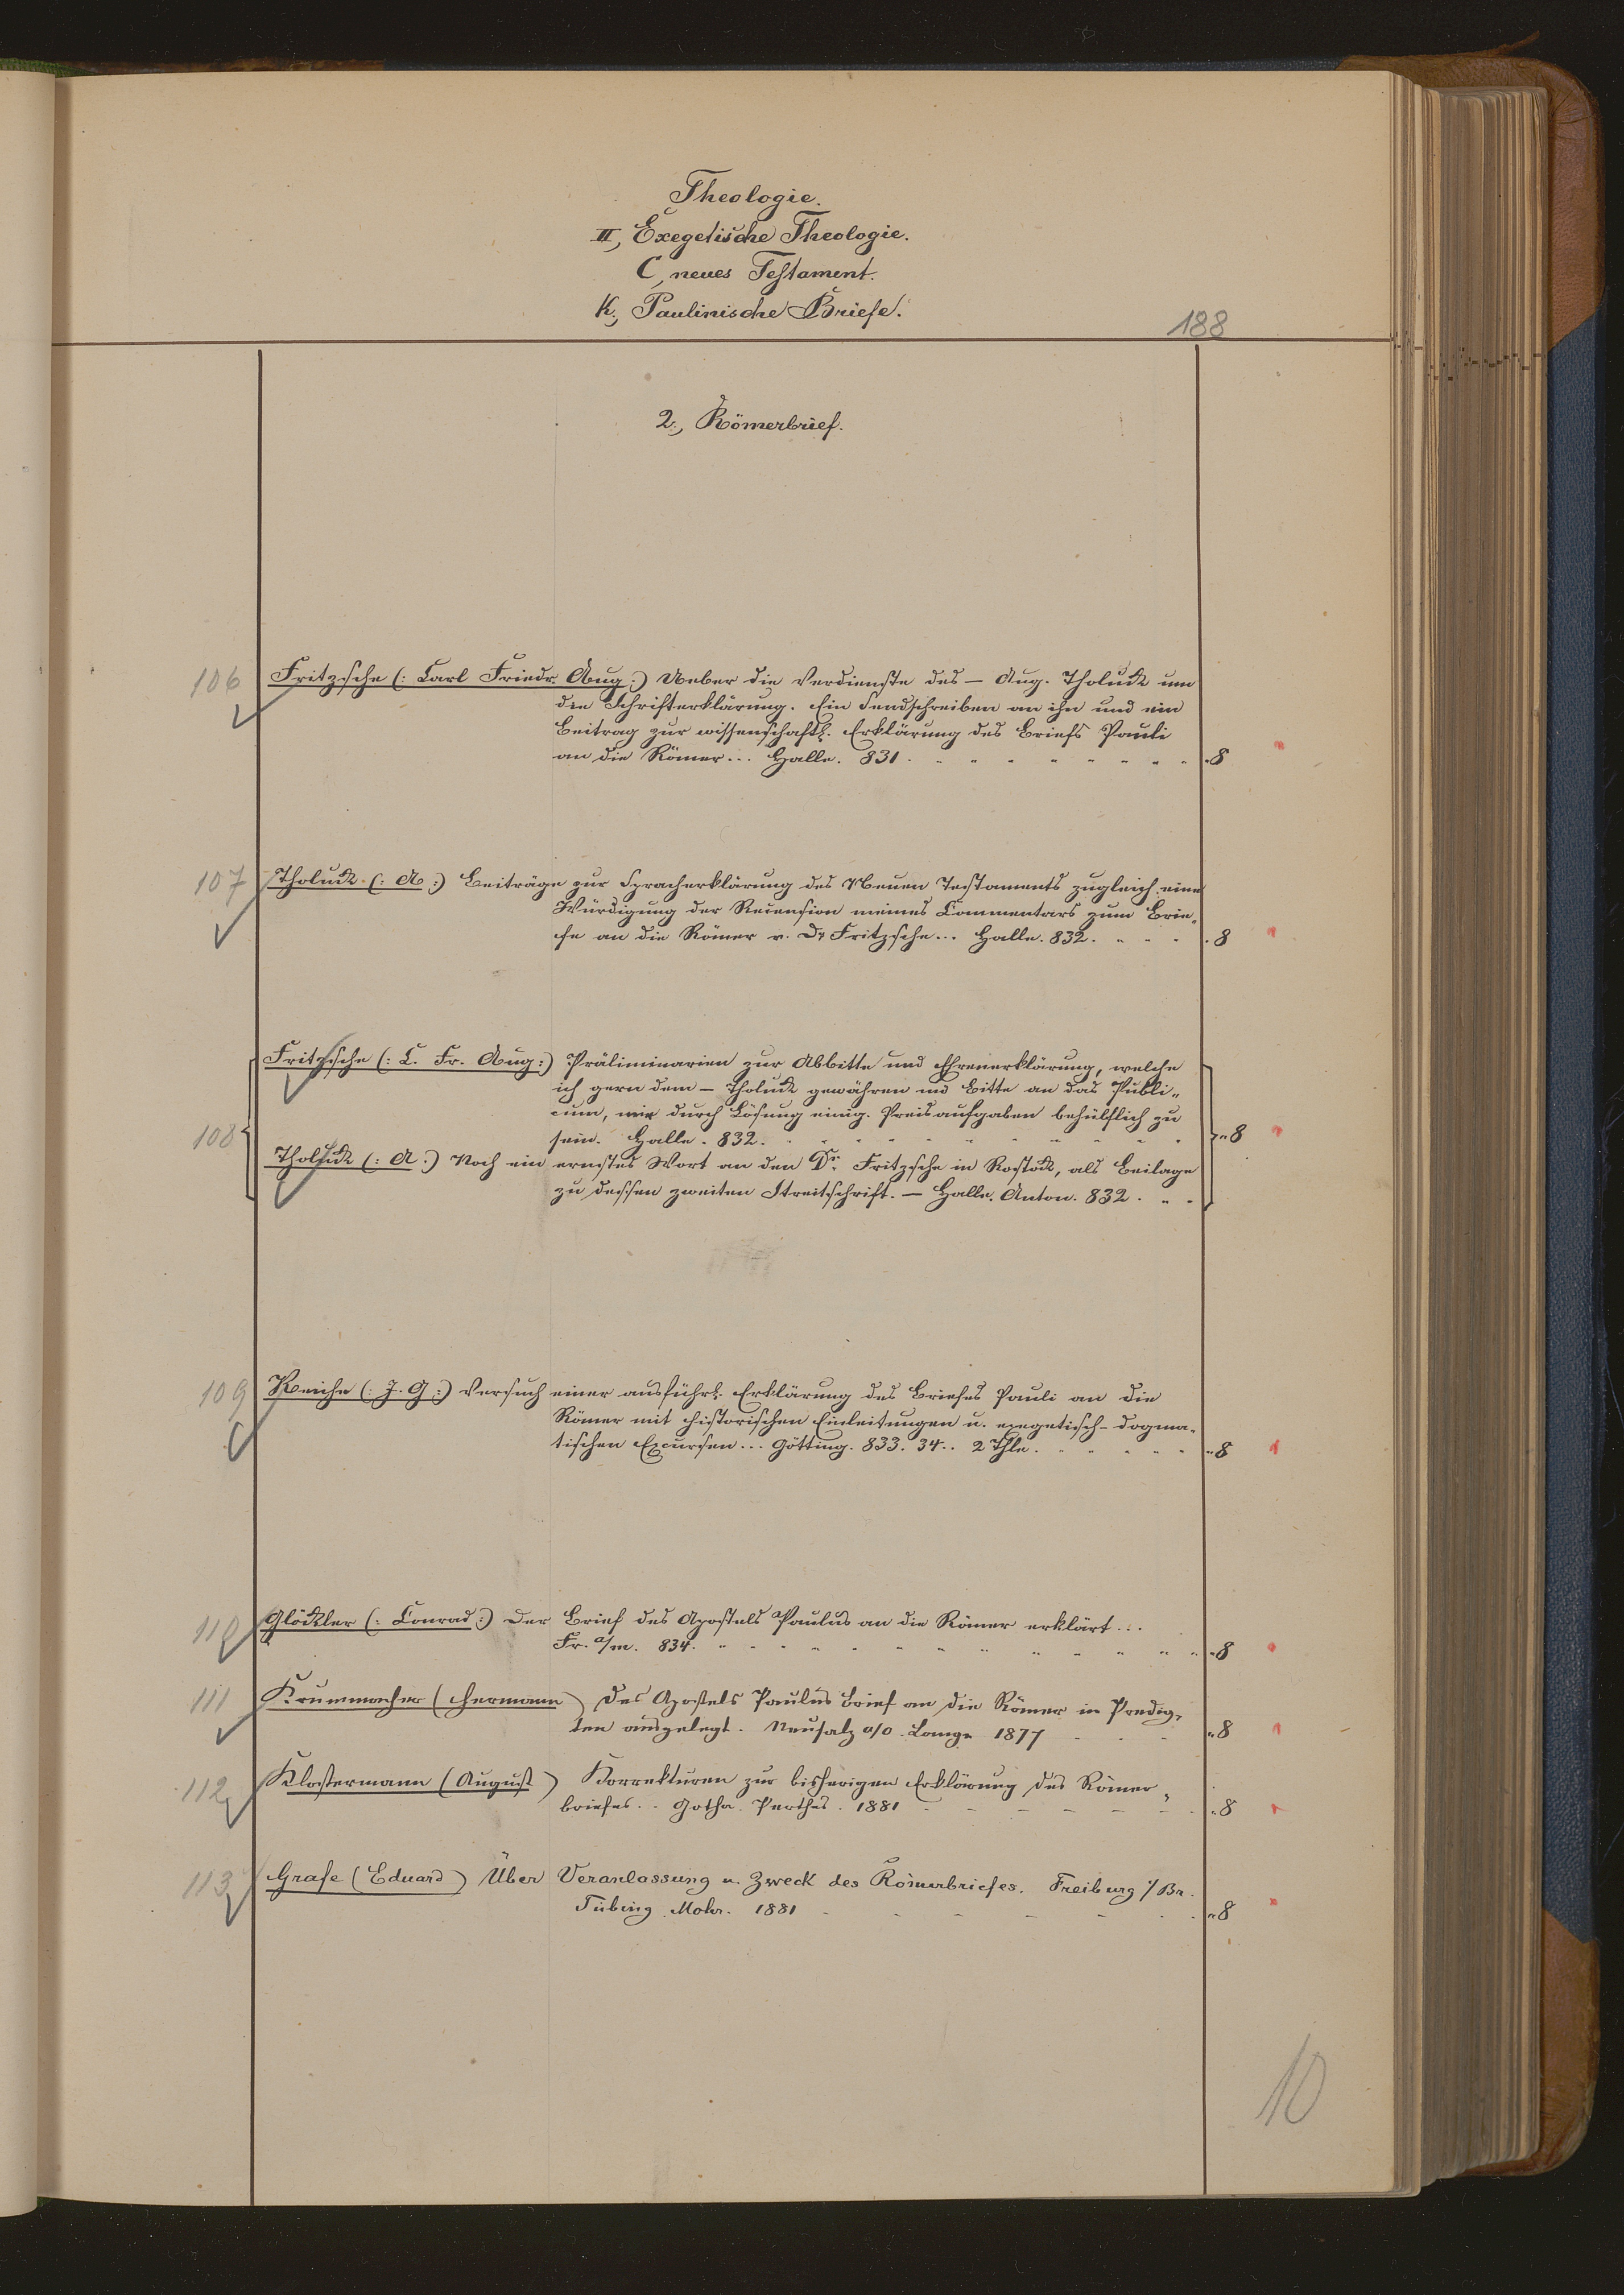 Theologie.
II, Exegetische Theologie.
C, neues Testament.
K., Paulinische Briefe.
188
2., Römerbrief.
106 Fritzsche (: Carl Friedr. Aug:) Ueber die Verdienste des — Aug. Tholuck um
die Schrifterklärung. Ein Sendschreiben an ihn und ein
Beitrag zur wissenschaftl. Erklärung des Briefs Pauli
an die Römer... Halle. 831. 8
107 Tholuck. (: A:) Beiträge zur Spracherklärung des Neuen Testaments zugleich eine
Würdigung der Recension meines Commentars zum Brie-
fe an die Römer v. Dr Fritzsche... Halle. 832. 8
Fritzsche (: C. Fr. Aug:) Präliminarien zur Abbitte und Ehrenerklärung, welche
ich gern dem — Tholuck gewähren und Bitte an das Publi-
cum, mir durch Lösung einig. Preisaufgaben behülflich zu
108 sein. Halle. 832. 8
Tholuck (: A.) Noch ein ernstes Wort an den Dr. Fritzsche in Rostock, als Beilage
zu dessen zweiten Streitschrift. — Halle. Anton. 832.
109 Reiche (: J. G:) Versuch einer ausführl. Erklärung des Briefes Pauli an die
Römer mit historischen Einleitungen u. exegetisch-dogma-
tischen Excursen... Götting. 833. 34.. 2 Thle. 8
110 Glöckler (: Conrad:) Der Brief des Apostels Paulus an die Römer erklärt...
Fr. a/m. 834. 8
111 Krummacher (Hermann) Des Apostels Paulus Brief an die Römer in Predig-
ten ausgelegt. Neusalz a/O. Lange 1877 8
112 Klostermann (August) Korrekturen zur bisherigen Erklärung des Römer-
briefes.. Gotha. Perthes. 1881 8
113 Grafe (Eduard) Über Veranlassung u. Zweck des Römerbriefes. Freiburg i/Br.
Tübing. Mohr. 1881 8
10